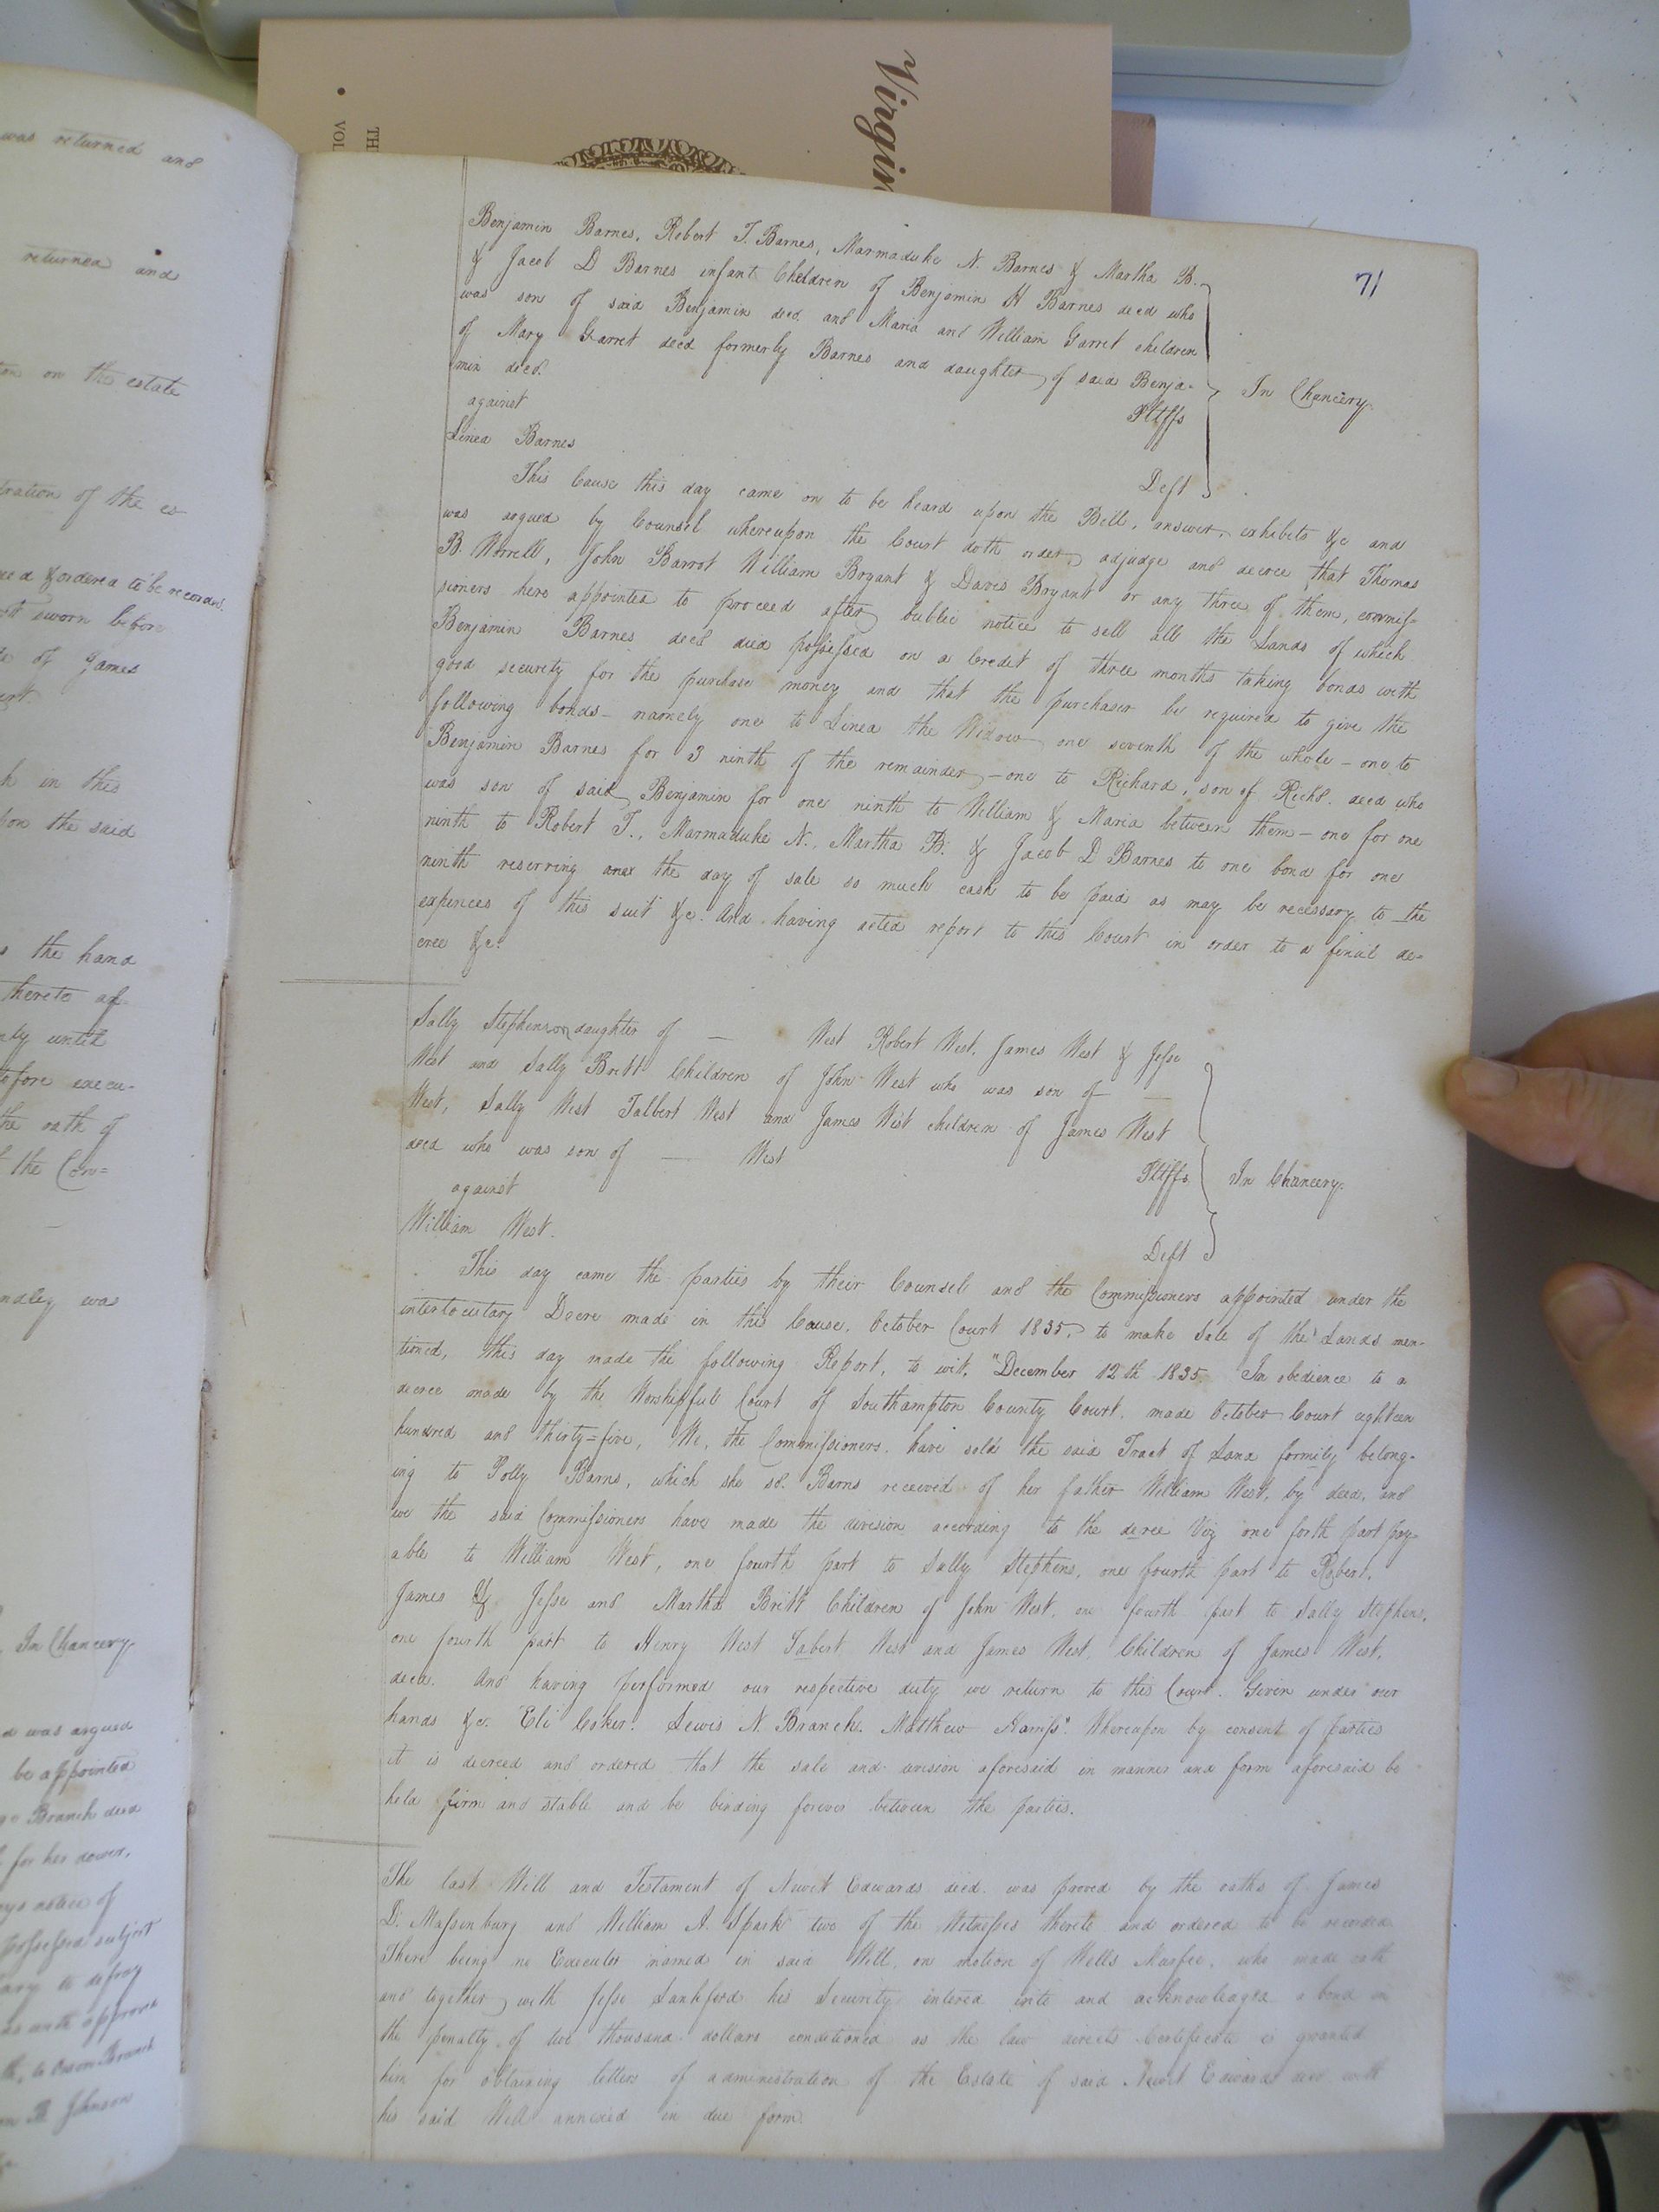 Virgin
TH
VOL
was returned and
returned and
on the estate
tration of the es-
& ordered to be recorded.
sworn before
of James
h in this
pon the said
the hand
thereto af-
until
before execu-
the oath of
the Com=
was
In Chancery
was argued
be appointed
Branch decd
for her dower,
notice of
possessed subject
to defray
approved
to Branch
Johnson
71
Benjamin Barnes, Robert T. Barnes, Marmaduke N. Barnes & Martha B.
& Jacob D Barnes infant Children of Benjamin H Barnes decd who
was son of said Benjamin decd. and Maria and William Garret children
of Mary Garret decd formerly Barnes and daughter of said Benja-
min decd. Pltffs
In Chancery.
against
Linea Barnes Deft
This Cause this day came on to be heard upon the Bill, answer, exhibits &c and
was argued by Counsel whereupon the Court doth order, adjudge and decree that Thomas
B. Worrell, John Barrot William Bryant & Davis Bryant or any three of them, commis-
sioners here appointed to proceed after public notice to sell all the Lands of which
Benjamin Barnes decd died possessed on a Credit of three months taking bonds with
good security for the purchase money and that the purchaser be required to give the
following bonds - namely one to Linea the Widow one seventh of the whole - one to
Benjamin Barnes for 3 ninth of the remainder - one to Richard, son of Richd. decd who
was son of said Benjamin for one ninth to William & Maria between them - one for one
ninth to Robert T., Marmaduke N., Martha B. & Jacob D Barnes to one bond for one
ninth reserving the day of sale so much cash to be paid as may be necessary to the
expences of this suit &c. And having acted report to this Court in order to a final de-
cree &c.
Sally Stephenson daughter of — West Robert West, James West & Jesse
West and Sally Britt Children of John West who was son of —
West, Sally West Talbert West and James West children of James West
decd who was son of — West Pltffs.
In Chancery.
against
William West. Deft
This day came the parties by their Counsel and the Commissioners appointed under the
interlocutary Decre made in this Cause, October Court 1835, to make Sale of the Lands men-
tioned, this day made the following Report, to wit, "December 12th 1835. In obedience to a
decree made by the Worshipfull Court of Southampton County Court, made October Court eighteen
hundred and thirty=five, We, the Commissioners, have sold the said Tract of Land formily belong-
ing to Polly Barns, which she sd. Barns received of her father William West, by deed, and
we the said Commissioners have made the division according to the decree Viz one forth part pay-
able to William West, one fourth part to Sally Stephens, one fourth part to Robert,
James & Jesse and Martha Britt Children of John West, one fourth part to Sally Stephens,
one fourth part to Henry West Tabert West and James West, Children of James West,
decd. And having performed our respective duty we return to this Court. Given under our
hands &c. Eli Coker. Lewis N. Branch. Matthew Harriss". Whereupon by consent of parties
it is decreed and ordered that the sale and division aforesaid in manner and form aforesaid be
held firm and stable and be binding forever between the parties.
The last Will and Testament of Newit Edwards decd. was proved by the oaths of James
D. Massenburg and William A. Spark two of the Witnesses thereto and ordered to be recorded
There being no Executor named in said Will, on motion of Wells Murfee, who made oath
and together with Jesse Lankford his Security entered into and acknowledged a bond in
the penalty of two thousand dollars conditioned as the law directs Certificate is granted
him for obtaining letters of administration of the Estate of said Newit Edwards decd with
his said Will annexed in due form.